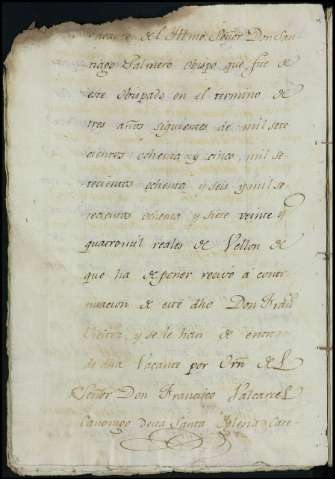 vacante del Yttmo. Señor Don San-
tiago Palmero Obispo que fue de
este Obispado en el termino de
tres años siguientes de mil sete
cientos ochenta y cinco, mil se
tecientos ochenta y seis y mil se
tecientos ochenta y siete veinte y
quatro mil reales de Vellon de
que ha de poner recivo à conti-
nuacion de este dho Don Fran.co
y se le han de
de dha Vacante por Orn de el
Señor Don Francisco Valcarcel
Canonigo de esta Santa Yglesia Cate-